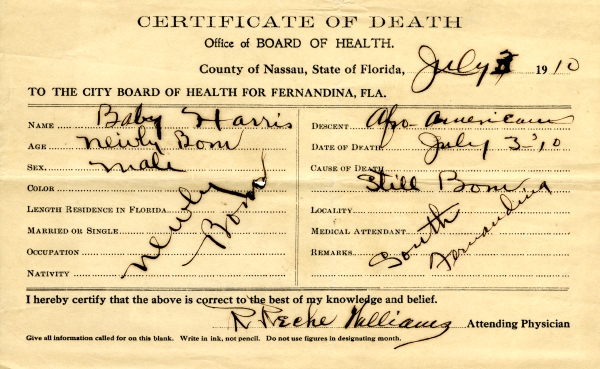 CERTIFICATE OF DEATH
Office of BOARD OF HEALTH.
County of Nassau, State of Florida, July 3 1910
TO THE CITY BOARD OF HEALTH FOR FERNANDINA, FLA.
NAME Baby Harris
AGE Newly Born
SEX. Male
COLOR
LENGTH RESIDENCE IN FLORIDA
MARRIED OR SINGLE
OCCUPATION
NATIVITY
Newly Born
DESCENT. Afro-American
DATE OF DEATH July 3-'10
CAUSE OF DEATH
Still Born
LOCALITY
MEDICAL ATTENDANT
REMARKS
South Fernandina
I hereby certify that the above is correct to the best of my knowledge and belief.
Williams Attending Physician
Give all information called for on this blank. Write in ink, not pencil. Do not use figures in designating month.